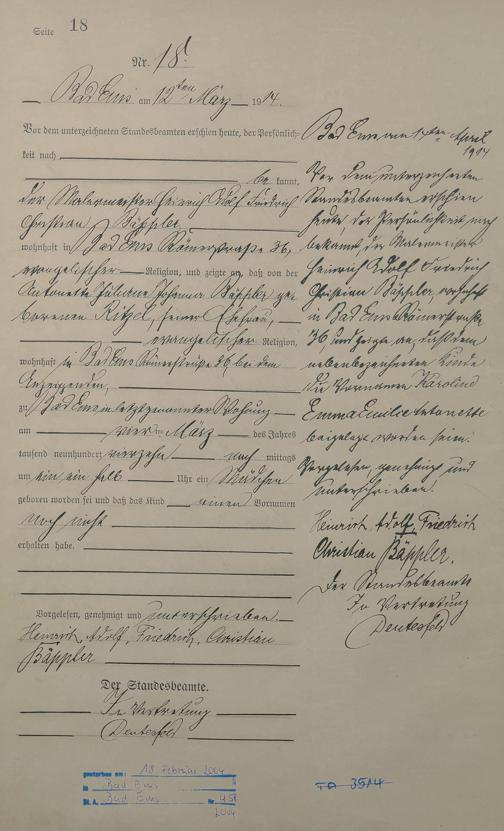 Seite 18
Nr. 18.
Bad Ems am 12ten März 1914.
Vor dem unterzeichneten Standesbeamten erschien heute, der Persönlich-
keit nach
be kannt,
der Malermeister Heinrich Adolf Friedrich
Christian Bäppler
wohnhaft in Bad Ems Römerstraße 36,
evangelischer Religion, und zeigte an, daß von der
Antonette Juliane Johanna Bäppler ge-
borenen Ritzel, seiner Ehefrau,
evangelischer Religion,
wohnhaft in Bad Ems Römerstraße 36 bei dem
Anzeigenden,
zu Bad Ems in letztgenannter Wohnung
am vier ten März des Jahres
tausend neunhundert vierzehn nach mittags
um ein ein halb Uhr ein Mädchen
geboren worden sei und daß das Kind einen Vornamen
noch nicht
erhalten habe.
Vorgelesen, genehmigt und unterschrieben.
Heinrich, Adolf, Friedrich, Christian
Bäppler
Der Standesbeamte.
In Vertretung
Bad Ems am 14ten April
1914
Vor dem unterzeichneten
Standesbeamten erschien
heute, der Persönlichkeit nach
bekannt, der Malermeister
Heinrich Adolf Friedrich
Christian Bäppler, wohnhaft
in Bad Ems Römerstraße
36, und zeigte an, daß dem
nebenbezeichneten Kinde
die Vornamen Karoline
Emma Emilie Antonette
beigelegt worden seien.
Vorgelesen, genehmigt und
unterschrieben.
Heinrich, Adolf, Friedrich
Christian Bäppler.
Der Standesbeamte
In Vertretung
gestorben am: 18. Februar 2004
in Bad Ems
St. A. Bad Ems Nr.
2004
3514